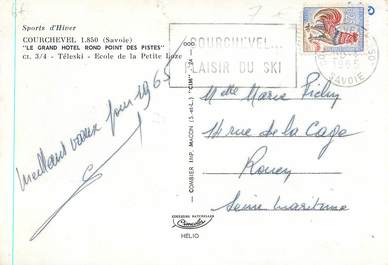 Sports d'Hiver
COURCHEVEL 1.850 (Savoie)
"LE GRAND HOTEL ROND POINT DES PISTES"
Ct. 3/4 - Téleski - Ecole de la Petite Loze
COURCHEVEL...
PLAISIR DU SKI
SAVOIE
Meilleurs vœux pour 1965
COMBIER IMP. MACON (S.-et-L.) "CIM"
Marie
14 rue de la Cage
Rouen
Seine Maritime
HELIO